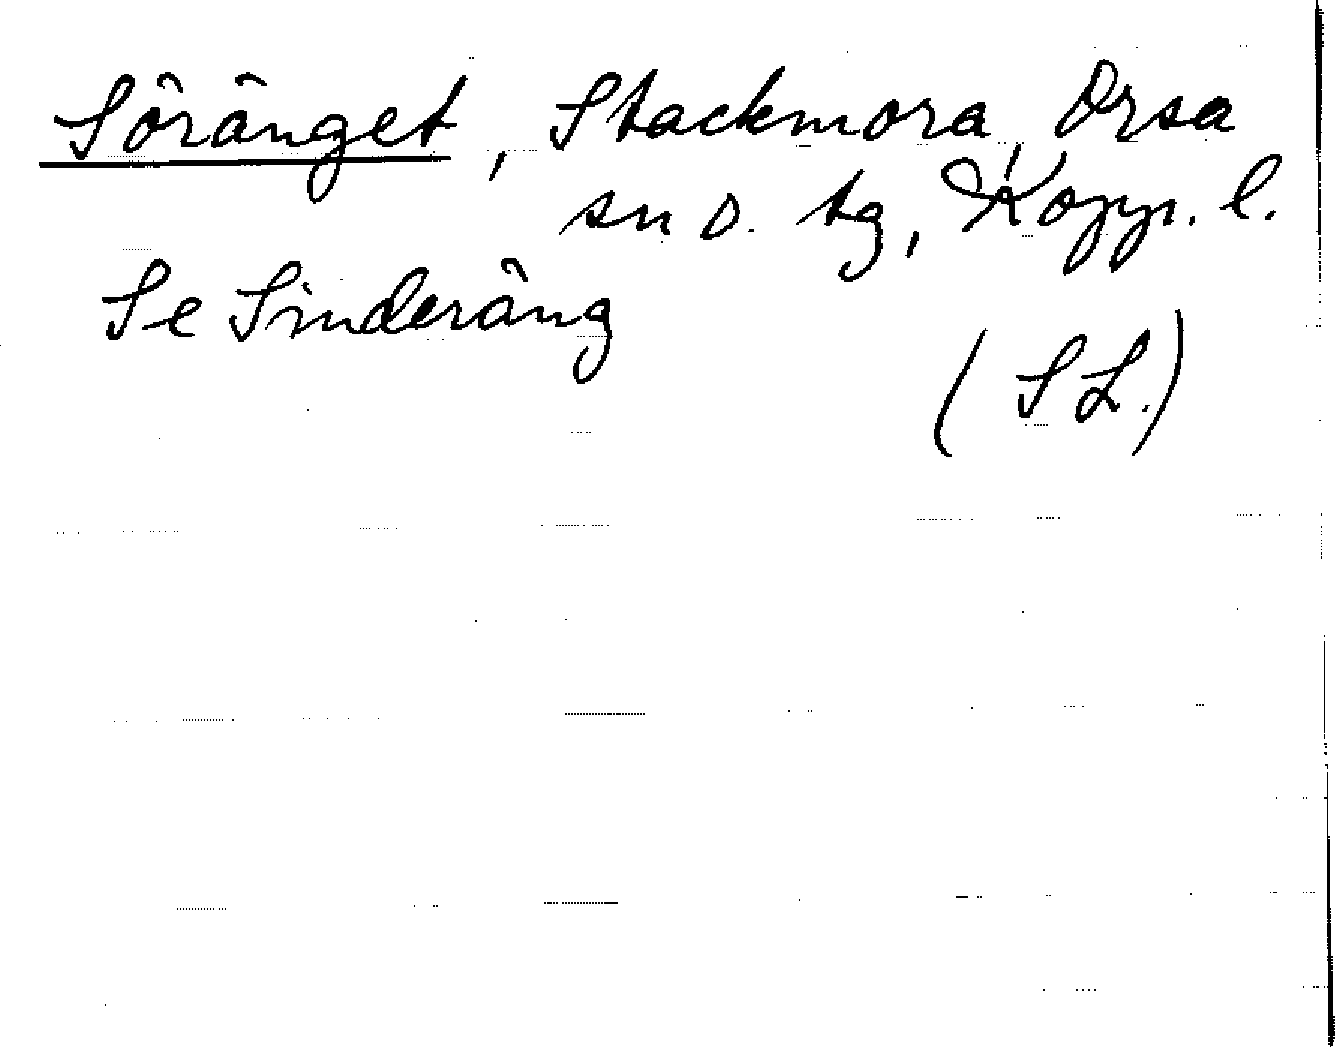 Söränget, Stackmora, Orsa
sn o. tg, Kopp. l.
Se Sinderäng
(SL.)